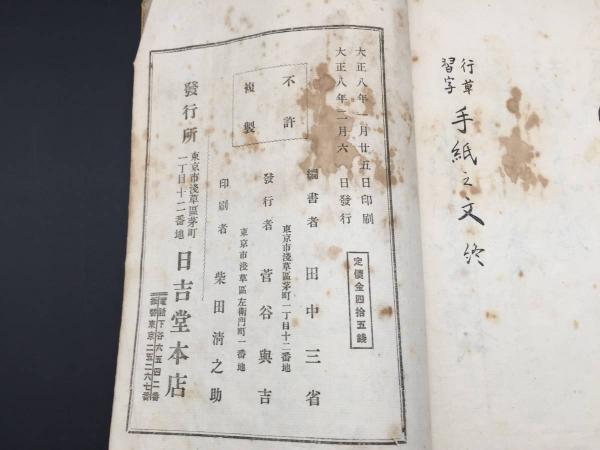 行草
習字
手紙之文 終
大正八年一月廿五日印刷
大正八年二月六日發行
定價金四拾五錢
不許
複製
編書者 田中三省
東京市淺草區茅町一丁目十二番地
發行者 菅谷與吉
東京市淺草區左衛門町一番地
印刷者 柴田清之助
發行所
東京市淺草區茅町
一丁目十二番地
日吉堂本店
電話下谷六五四二番
振替東京二五二六七番